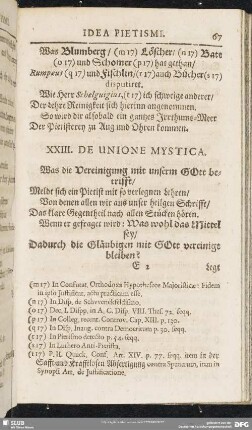 IDEA PIETISMI. 67
Was Blumberg/ (m 17) Löscher/ (n 17) Bare
(o 17) und Schomer (p 17) hat gethan/
Rumpæus (q 17) und Fischlin/ (r 17) auch Bücher (s 17)
disputiret.
Wie Herr Schelguigius, (t 17) ich schweige anderer/
Der Lehre Reinigkeit sich hierinn angenommen.
So wird dir alsobald ein gantzes Irrthums-Meer
Der Pietisterey zu Aug und Ohren kommen.
XXIII. DE UNIONE MYSTICA.
Was die Vereinigung mit unserm GOtt be-
trifft/
Meldt sich ein Pietist mit so verlegnen Lehren/
Von denen allen wir aus unser heilgen Schrifft/
Das klare Gegentheil nach allen Stücken hören.
Wenn er gefraget wird: Was wohl das Mittel
sey/
Dadurch die Gläubigen mit GOtt vereinigt
bleiben?
E 2 Legt
(m 17) In Confutat. Orthodoxa Hypotheseos Majoristicæ: Fidem
in ipso Justificat. actu practicam esse.
(n 17) In Disp. de Schwenckfeldismo.
(o 17) Dec. I. Disp. in A. C. Disp. VIII. Thes. 72. seqq.
(p 17) In Colleg. noviss. Controv. Cap. XIII. p. 130.
(q 17) In Disp. Inaug. contra Democritum p. 30. seqq.
(r 17) In Pietismo detecto p. 54. seqq.
(s 17) In Luthero Anti-Pietista.
(t 17) P. II. Quæst. Conf. Art. XIV. p. 77. seqq. item in der
Safft und Krafftlosen Abfertigung contra Spenerum, item in
Synopsi Art. de Justificatione.